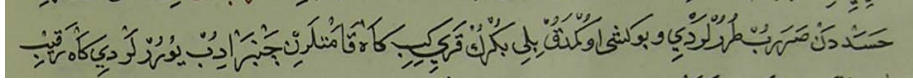 حسددن صررب طررلردي و بوكشى اوكندقى بلى بكرك قريب كاه قامتلرن چنبر ادب يوررلردي كاه رقيب